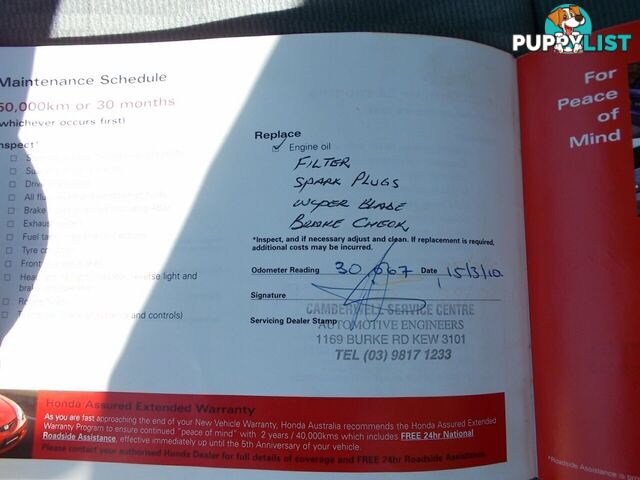 PUPPYLIST
Maintenance Schedule
50,000km or 30 months
(whichever occurs first)
Inspect*
All
Brake
Exhaus
Fuel ta
Tyre co
Front
reverse light and
and controls)
Replace
Engine oil
FILTER
SPARK PLUGS
WIPER BLADE
BRAKE CHECK
*Inspect, and if necessary adjust and clean. If replacement is required,
additional costs may be incurred.
Odometer Reading 30,667 Date 15/3/10
Signature
Servicing Dealer Stamp
CAMBERWELL SERVICE CENTRE
AUTOMOTIVE ENGINEERS
1169 BURKE RD KEW 3101
TEL (03) 9817 1233
Honda Assured Extended Warranty
As you are fast approaching the end of your New Vehicle Warranty, Honda Australia recommends the Honda Assured Extended
Warranty Program to ensure continued "peace of mind" with 2 years / 40,000kms which includes FREE 24hr National
Roadside Assistance, effective immediately up until the 5th Anniversary of your vehicle.
Please contact your authorised Honda Dealer for full details of coverage and FREE 24hr Roadside Assistance.
For
Peace
of
Mind
*Roadside Assistance is pro